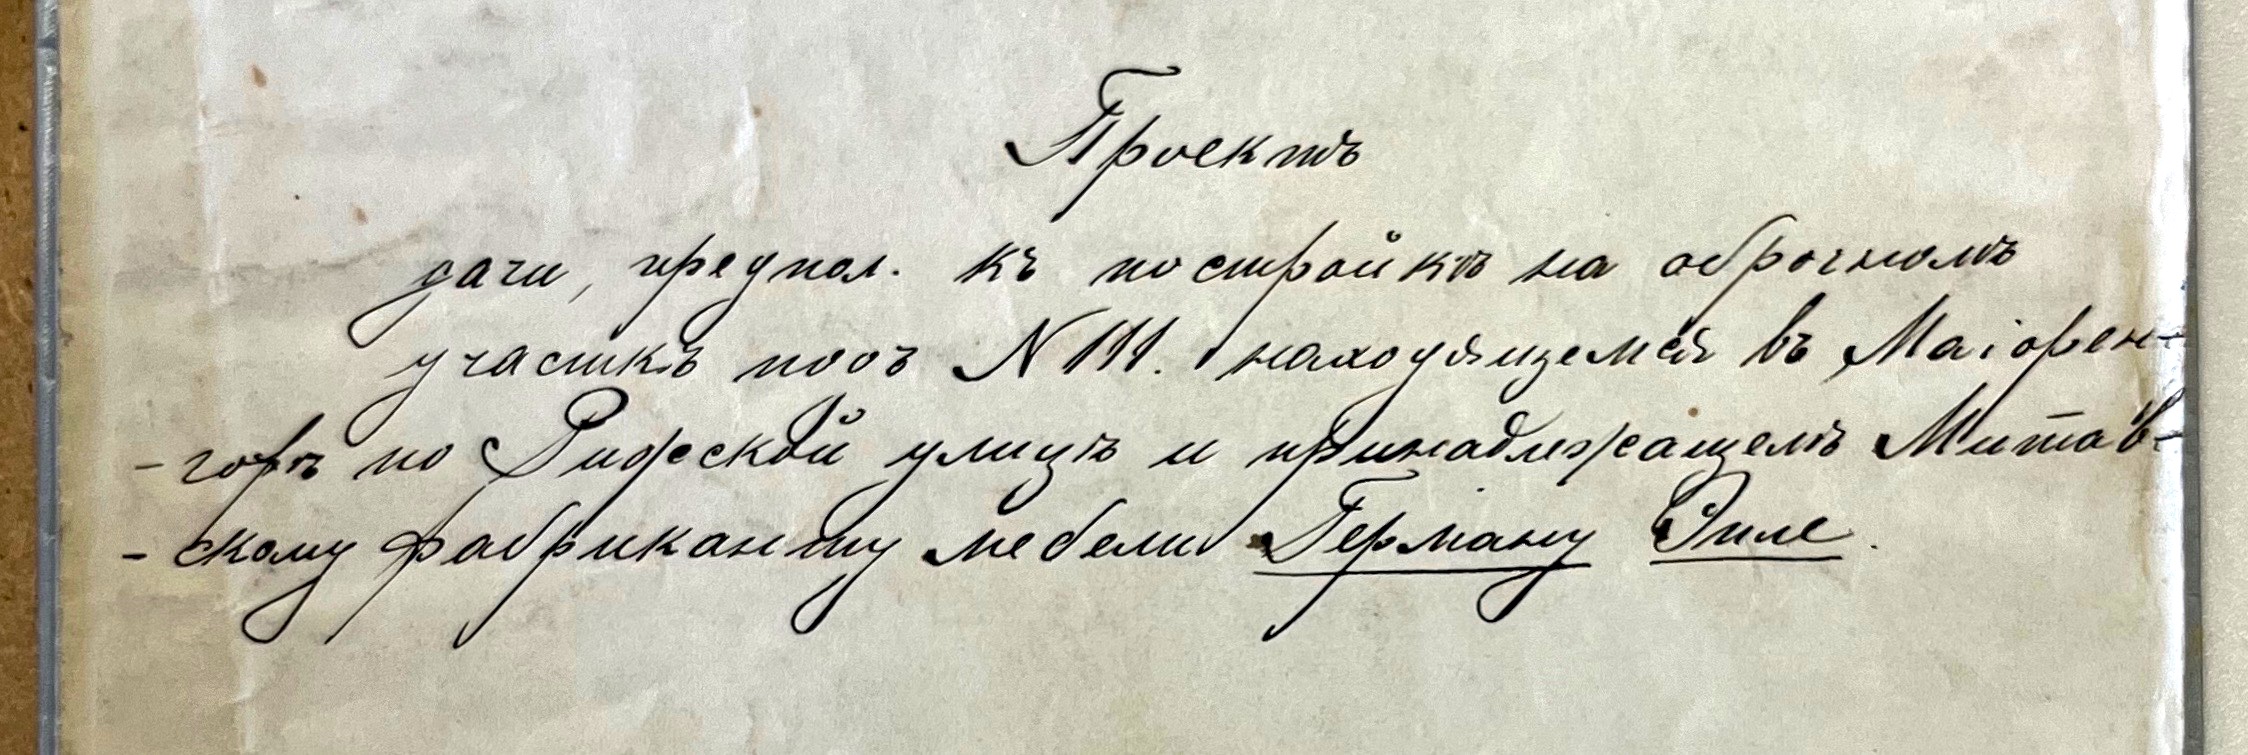 Проектъ
дачи, предпол. къ постройкѣ на оброчномъ
участкѣ подъ N 111. находящемся въ Маіорен-
-гофѣ по Рижской улицѣ и принадлежащемъ Митав-
-скому фабриканту мебели Герману Риле.